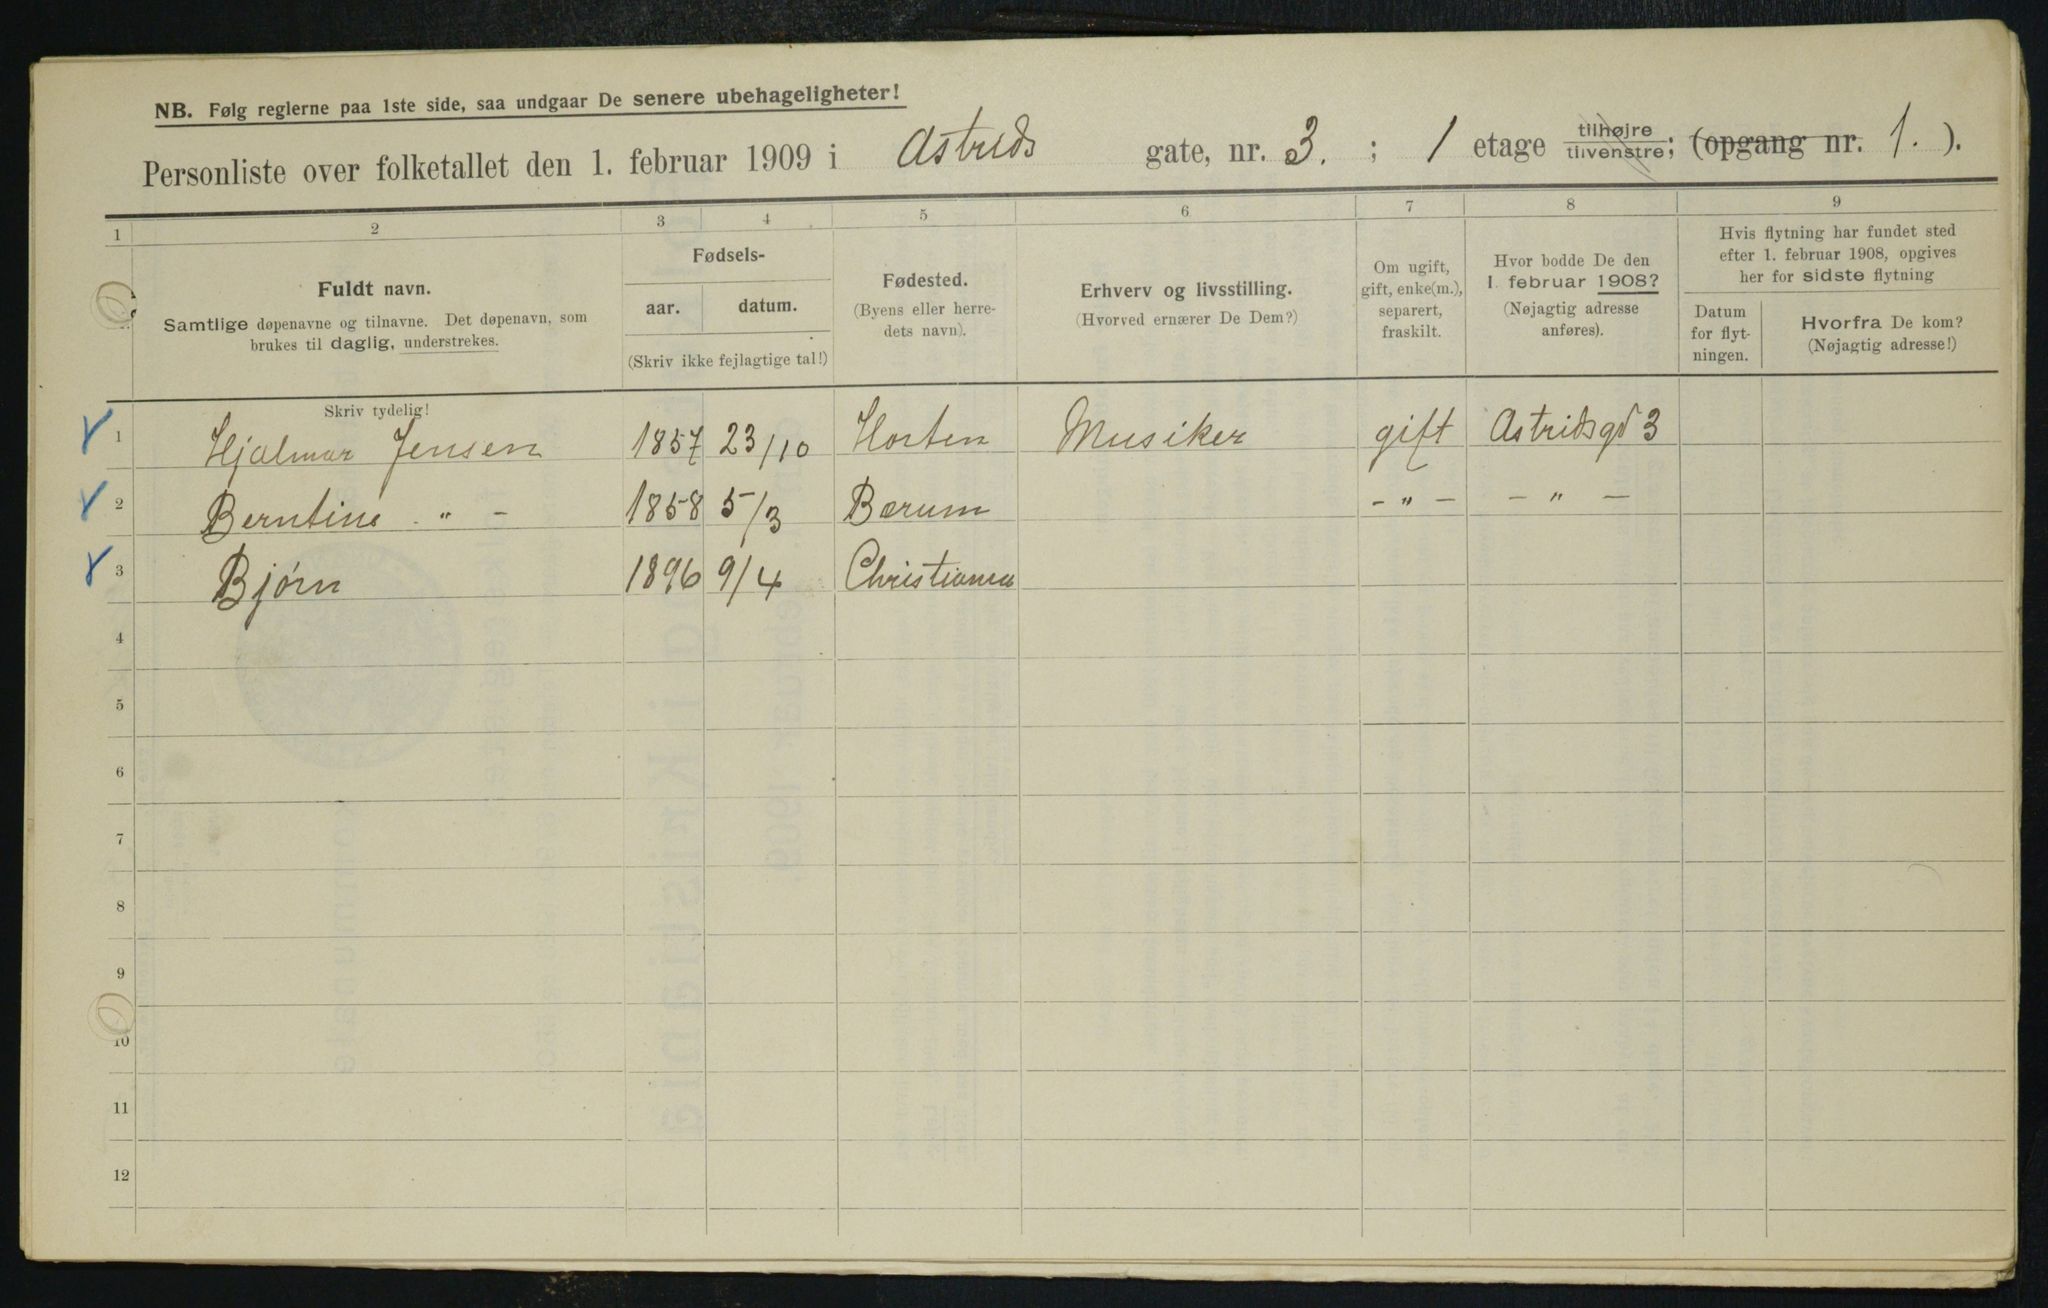 NB. Følg reglerne paa 1ste side, saa undgaar De senere ubehageligheter!
Personliste over folketallet den 1. februar 1909 i Astrids gate, nr. 3. ; 1 etage tilhøjre tilvenstre; (opgang nr. 1. ).
1 2 3 4 5 6 7 8 9
Fuldt navn.
Samtlige døpenavne og tilnavne. Det døpenavn, som
brukes til daglig, understrekes.
Fødsels-
aar. datum.
(Skriv ikke fejlagtige tal!)
Fødested.
(Byens eller herre-
dets navn).
Erhverv og livsstilling.
(Hvorved ernærer De Dem?)
Om ugift,
gift, enke(m.),
separert,
fraskilt.
Hvor bodde De den
1. februar 1908?
(Nøjagtig adresse
anføres).
Hvis flytning har fundet sted
efter 1. februar 1908, opgives
her for sidste flytning
Datum
for flyt-
ningen.
Hvorfra De kom?
(Nøjagtig adresse!)
Skriv tydelig!
1 Hjalmar Jensen 1857 23/10 Horten Musiker gift Astridsgd 3
2 Berntine " - 1858 5/3 Bærum - " - - " -
3 Bjørn 1896 9/4 Christiania
4
5
6
7
8
9
10
11
12